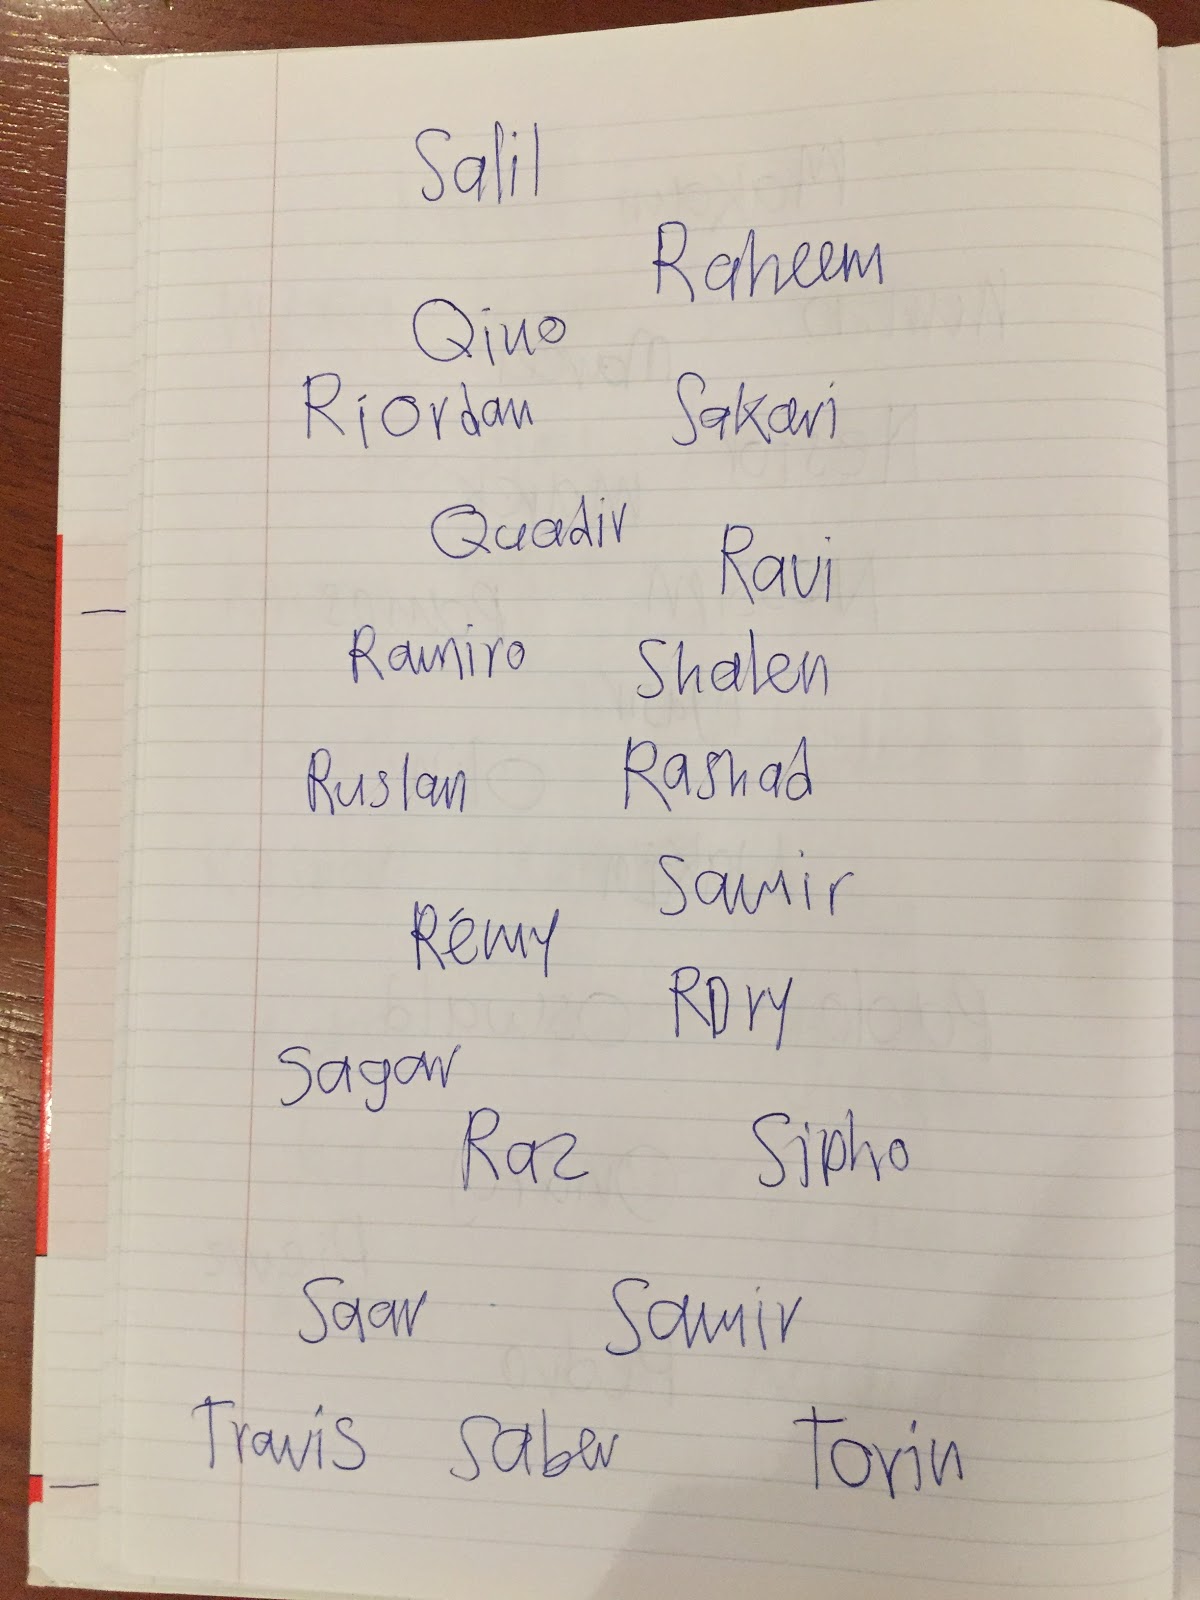 Salil
Raheem
Qino
Riordan Sakari
Quadir
Ravi
Ramiro Shalen
Ruslan Rashad
Samir
Rémy
Rory
Sagar
Raz Sipho
Saar Samir
Travis Saber Torin